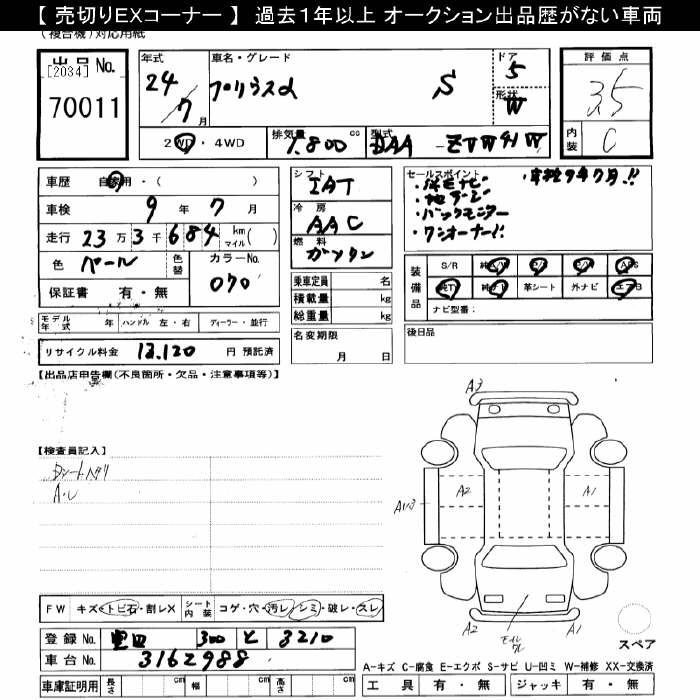 【 売切りEXコーナー 】 過去１年以上 オークション出品歴がない車両
(複合機)対応用紙
出品No.
[2034]
70011
年式
24
7月
車名・グレード
プリウスα S
ドア
5
形状
W
2WD・4WD
排気量 1,800 cc
型式 DAA - ZVW41W
評価点
3.5
内装
C
車歴 自家用・( )
車検 9年7月
走行 23万3千684 km マイル( )
色 パール 色替 カラーNo. 070
保証書 有・無
モデル年式 年 ハンドル 左・右 ディーラー・並行
リサイクル料金 13,120 円 預託済
シフト
IAT
冷房
AAC
燃料
ガソリン
乗車定員 名
積載量 kg
総重量 kg
名変期限
月 日
セールスポイント
・車検9年7月!!
・純正ナビ
・地デジ
・バックモニター
・ワンオーナー!!
装備品
S/R 純 P/S P/W ABS
純TV 純ナビ 革シート 外ナビ エアB
ナビ型番:
後日品
【出品店申告欄(不良箇所・欠品・注意事項等)】
【検査員記入】
A・U
A3
A2
A1
A1ハ3
A2
A1
スペア
FW キズ・トビ石・割レX シート内装 コゲ・穴・汚レ・シミ・破レ・スレ
登録No. 豊田 300 と 3210
車台No. 3162988
車庫証明用 長さ cm 幅 cm 高さ cm
A-キズ C-腐食 E-エクボ S-サビ U-凹ミ W-補修 XX-交換済
工具 有・無 ジャッキ 有・無